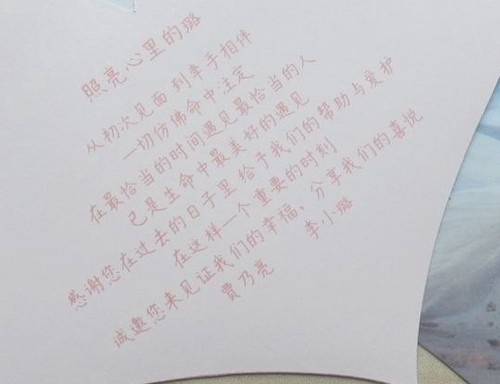 照亮心里的璐
从初次见面到牵手相伴
一切仿佛命中注定
在最恰当的时间遇见最恰当的人
已是生命中最美好的遇见
感谢您在过去的日子里给予我们的帮助与爱护
在这样一个重要的时刻
诚邀您来见证我们的幸福，分享我们的喜悦
贾乃亮 李小璐